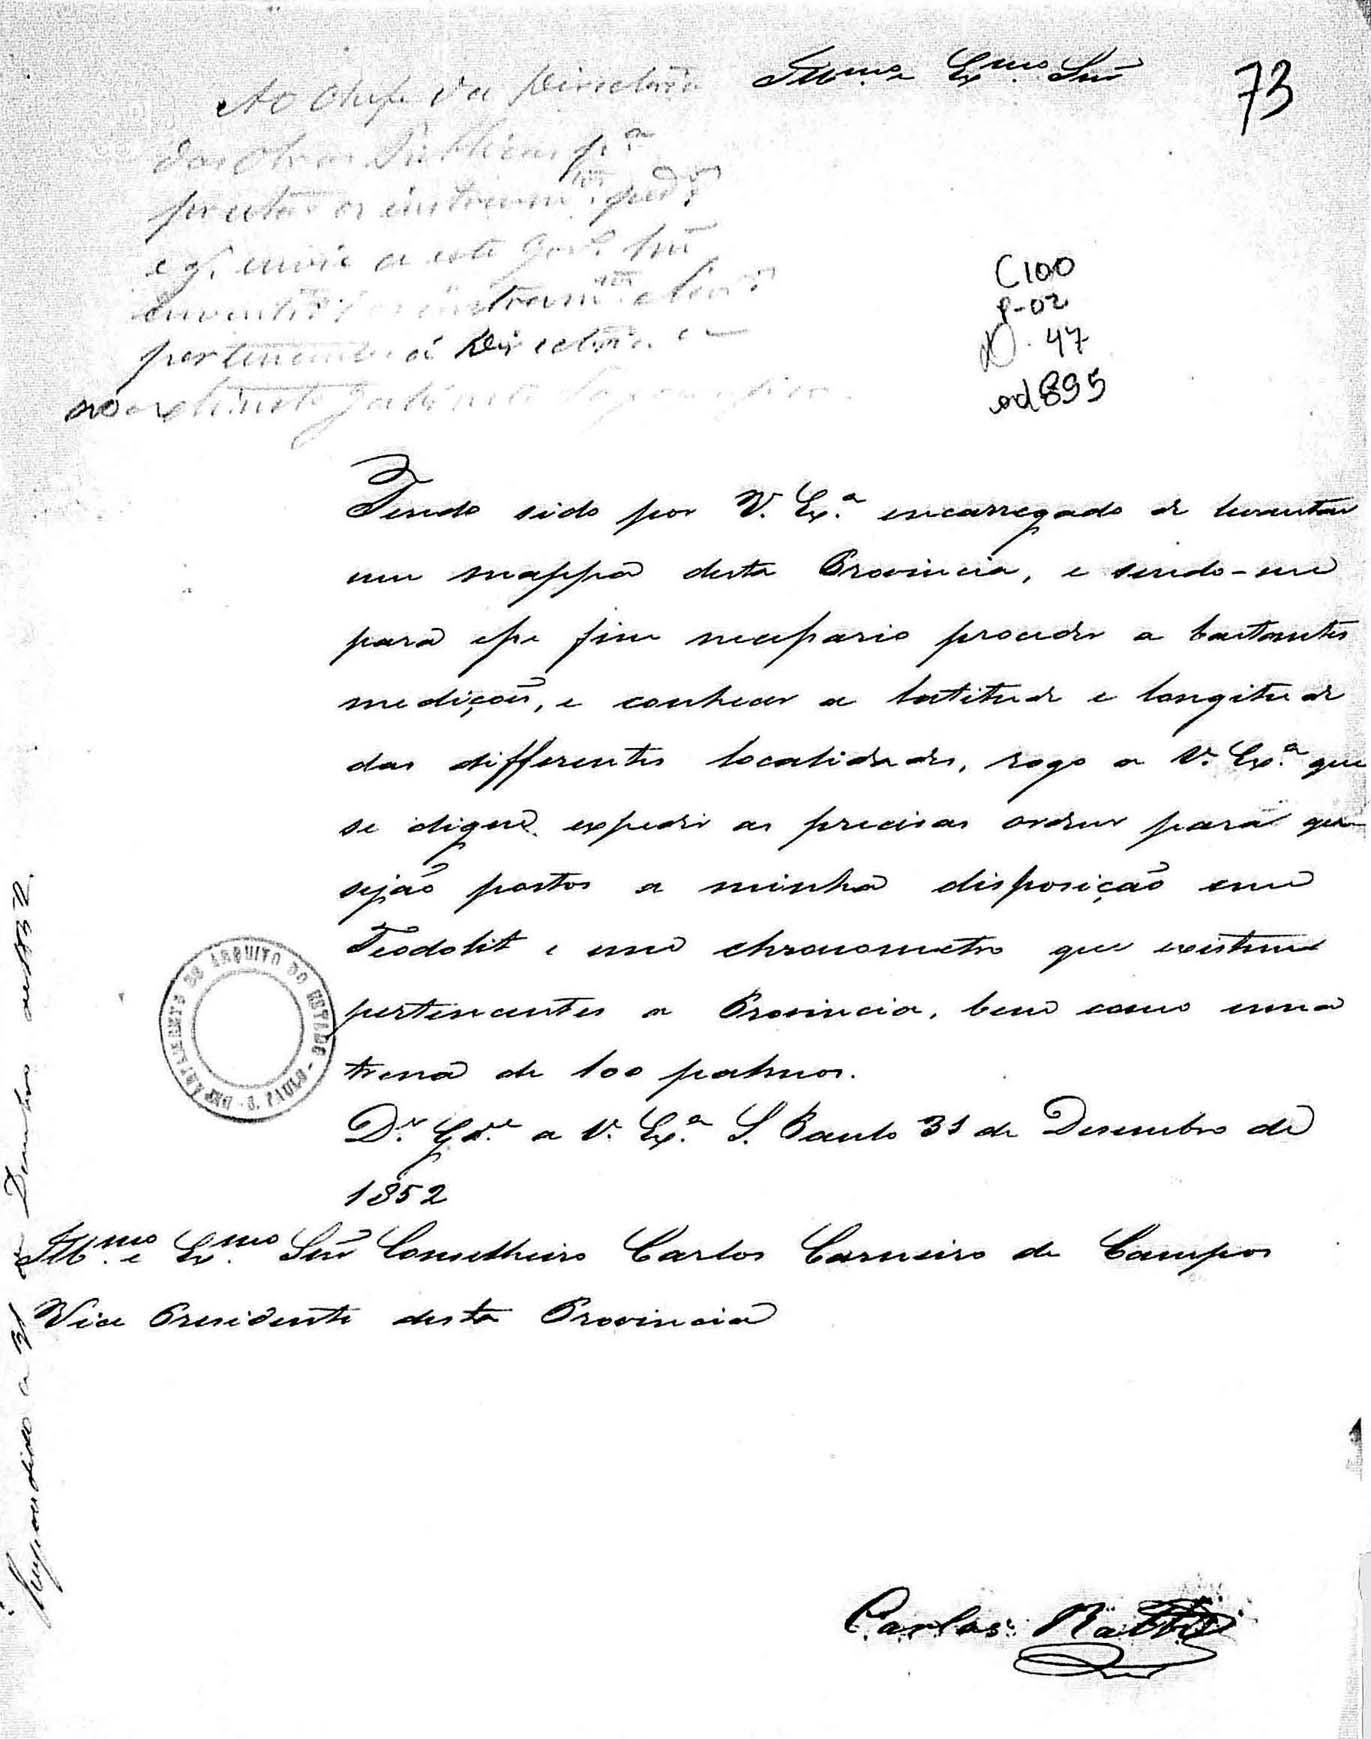 Illmo e Exmo Snr
73
Ao Chefe da Directoria
das Obras Publicas pa
prestar os instrumtos pedos
e q. envie a este Govo hũ
inventro dos instrumtos
pertencentes á Directoria e
ao extincto Gabinete Topographico.
C100
P-02
D. 47
od 895
Tendo sido por V. Exa encarregado de levantar
um mappa desta Provincia, e sendo-me
para esse fim necessario proceder a bastantes
medições, e conhecer a latitude e longitude
das differentes localidades, rogo a V. Exa que
se digne expedir as precisas ordens para que
sejão postos a minha disposição um
Teodolit e um chronometro que existem
pertencentes a Provincia, bem como uma
trena de 100 palmos.
Ds Gde a V. Exa S. Paulo 31 de Desembro de
1852
Illmo e Exmo Snr Conselheiro Carlos Carneiro de Campos
Vice Presidente desta Provincia
Carlos Rath
Respondido a 31 de Dezembro de 1852.
DEPARTAMENTO DO ARQUIVO DO ESTADO - S. PAULO